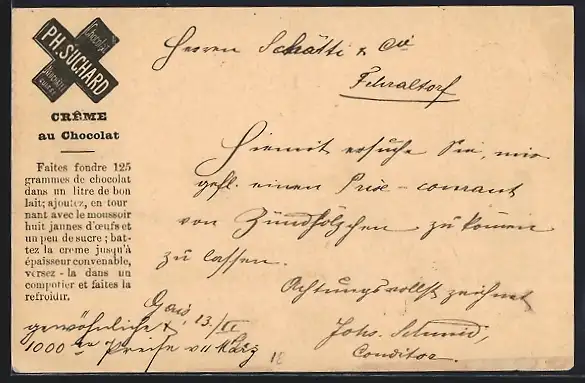 Chocolat
PH. SUCHARD
CRÊME
au Chocolat
Faites fondre 125
grammes de chocolat
dans un litre de bon
lait; ajoutez, en tour
nant avec le moussoir
huit jaunes d'œufs et
un peu de sucre; bat-
tez la creme jusqu'à
épaisseur convenable,
versez-la dans un
compotier et faites la
refroidir.
Herren Schätti & Cie
Fehraltorf
Hiermit ersuche Sie, mir
gefl. einen Prix-courant
von Zündhölzchen zukommen
zu lassen.
Achtungsvollst zeichnet
Johs. Schmid,
Conditor.
Gais, 13/II
gewöhnliche
1000 Preise